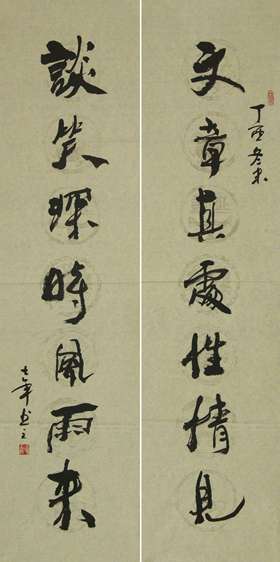 文章真處性情見
丁酉冬末
談笑深時風雨來